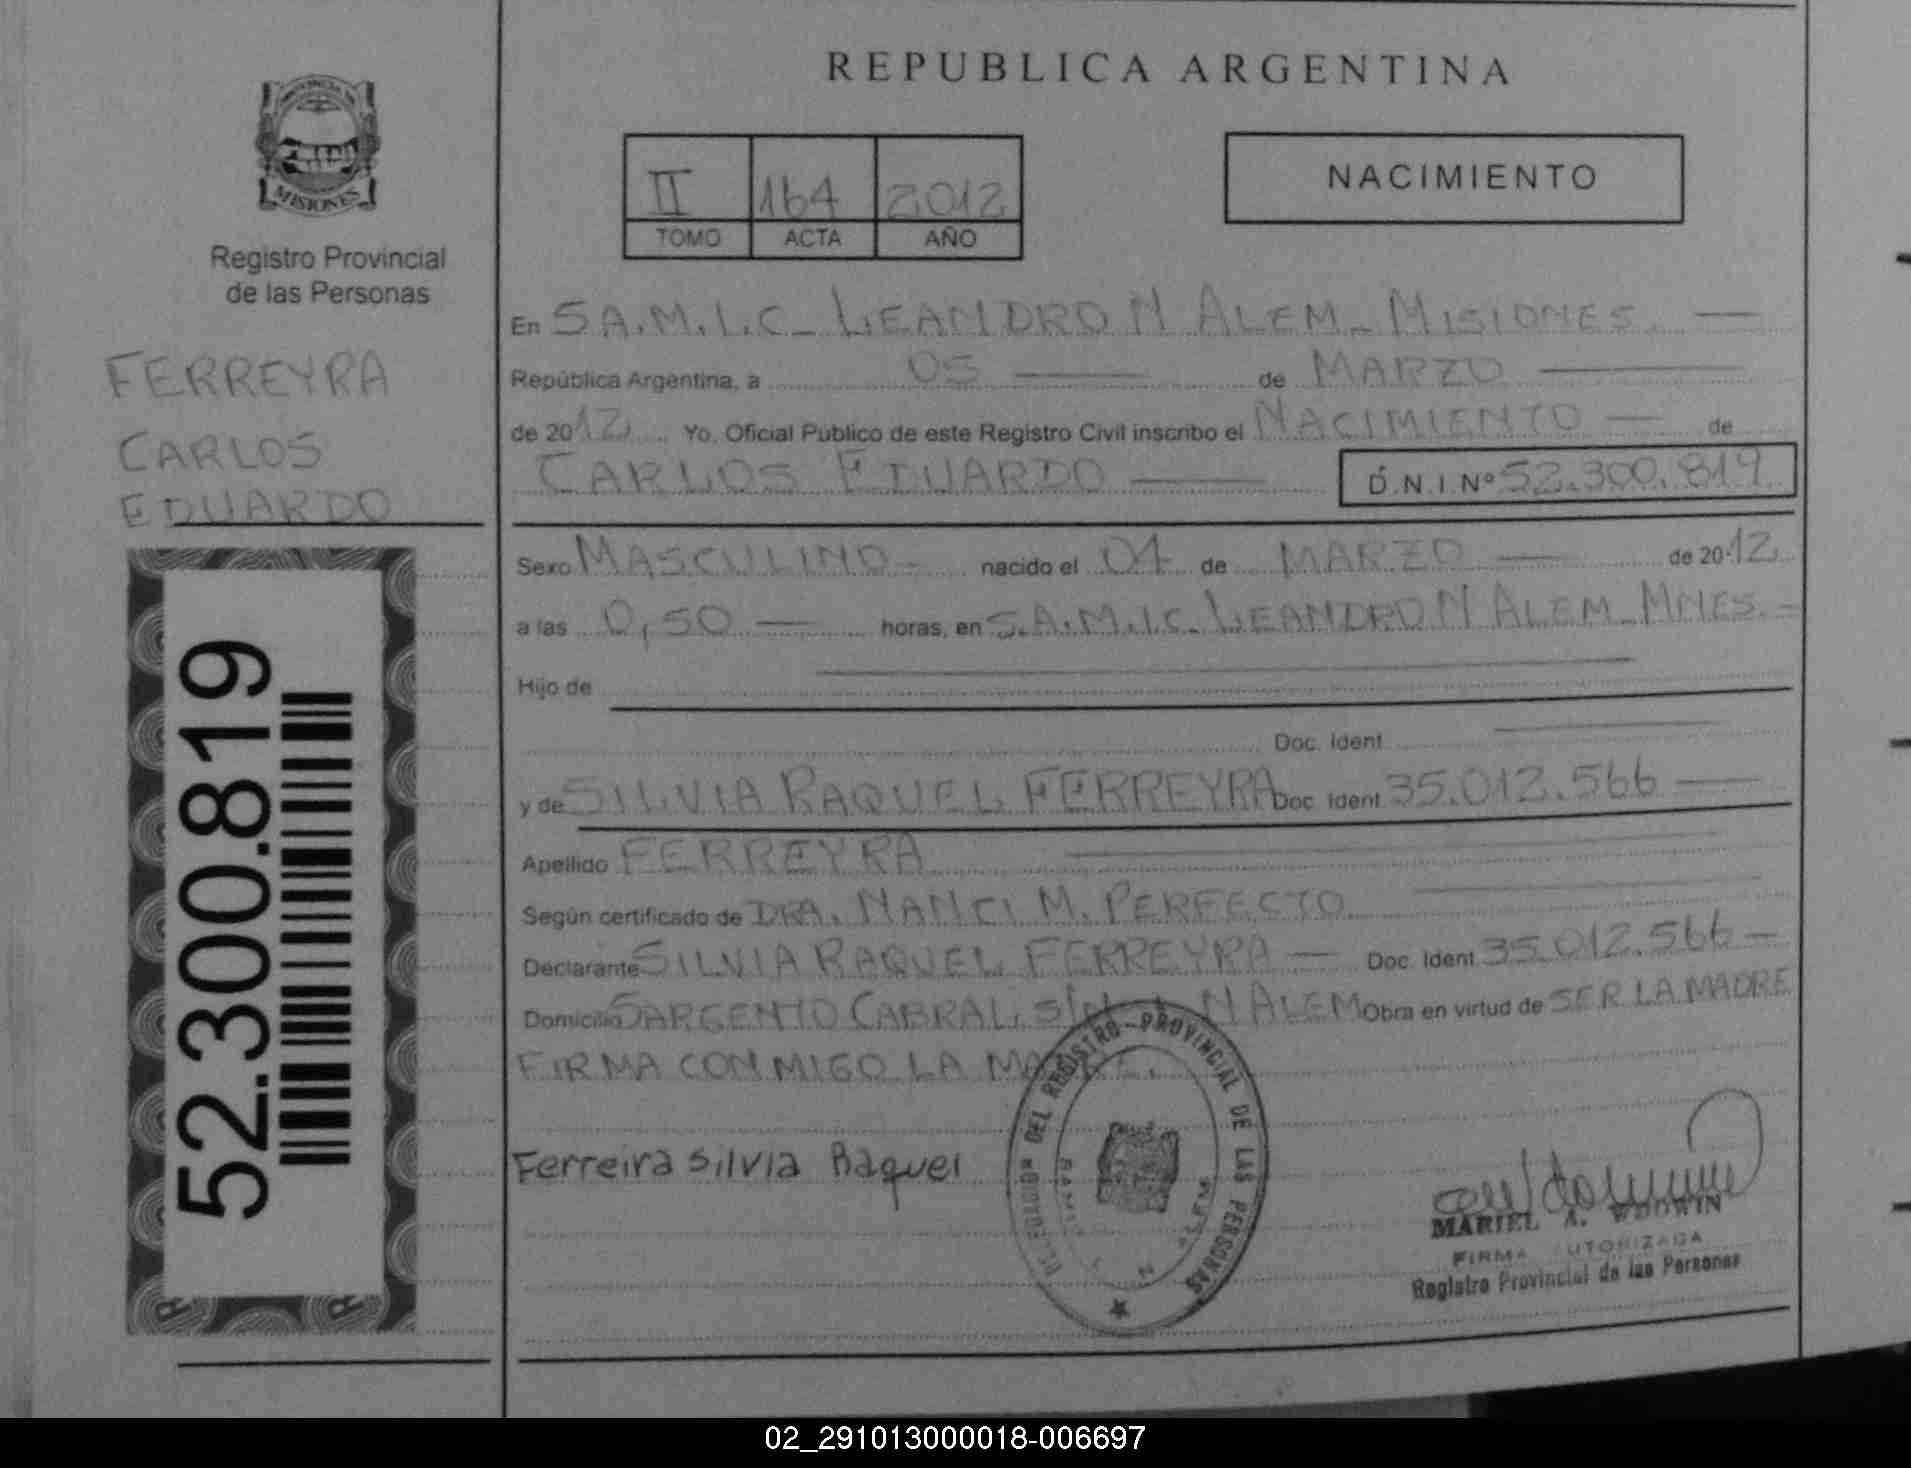 REPUBLICA ARGENTINA
PROVINCIA DE
MISIONES
Registro Provincial
de las Personas
FERREYRA
CARLOS
EDUARDO
52.300.819
II 164 2012
TOMO ACTA AÑO
NACIMIENTO
En S.A.M.I.C_ LEANDRO N ALEM_ MISIONES. —
República Argentina, a 05 — de MARZO —
de 2012 Yo, Oficial Público de este Registro Civil inscribo el NACIMIENTO — de
CARLOS EDUARDO — D.N.I.Nº 52.300.819
Sexo MASCULINO — nacido el 04 de MARZO — de 2012
a las 0,50 — horas, en S.A.M.I.C_ LEANDRO N ALEM_ MNES. —
Hijo de —
Doc. Ident. —
y de SILVIA RAQUEL FERREYRA Doc. Ident. 35.012.566 —
Apellido FERREYRA —
Según certificado de DRA. NANCI M. PERFECTO —
Declarante SILVIA RAQUEL FERREYRA — Doc. Ident. 35.012.566 —
Domicilio SARGENTO CABRAL, S/N N ALEM Obra en virtud de SER LA MADRE
FIRMA CONMIGO LA MADRE.
DEL REGISTRO PROVINCIAL DE LAS PERSONAS
Ferreira Silvia Raquel
MARIEL A. WDOWIN
FIRMA AUTORIZADA
Registro Provincial de las Personas
02_291013000018-006697